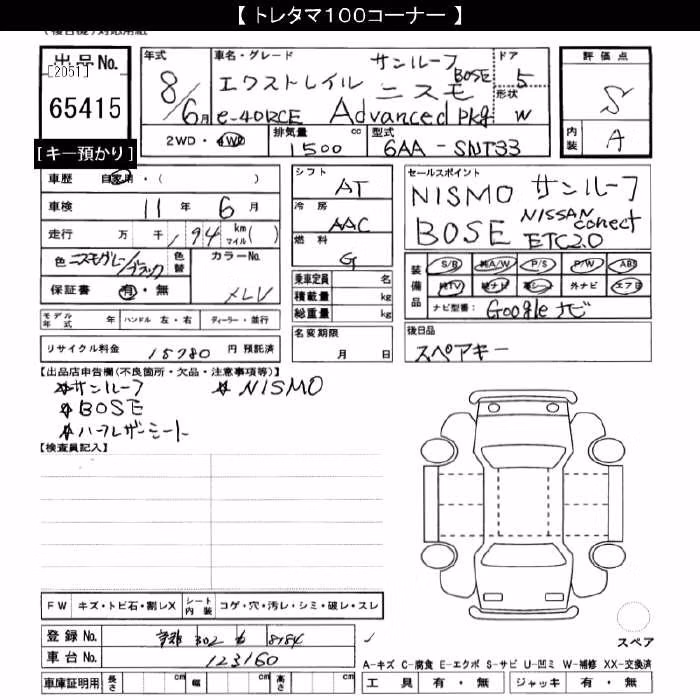 【 トレタマ100コーナー 】
出品No.
[2051]
65415
[キー預かり]
年式
8/6月
車名・グレード
サンルーフ
BOSE
エクストレイル ニスモ
e-4ORCE Advanced Pkg
ドア
5
形状
W
2WD・4WD
排気量
1500 cc
型式
6AA-SNT33
評価点
S
内装
A
車歴 自家用・( )
車検 11年 6月
走行 万 千 194 km マイル( )
色 ニスモグレー/ブラック
色替
カラーNo.
XLV
保証書 有・無
シフト
AT
冷房
AAC
燃料
G
乗車定員 名
積載量 kg
総重量 kg
セールスポイント
NISMO サンルーフ
BOSE NISSAN conect
ETC2.0
装備品
S/B 純A/W P/S P/W ABS
純TV 純ナビ 革シート 外ナビ エアB
ナビ型番: Googleナビ
モデル年式 年
ハンドル 左・右
ディーラー・並行
リサイクル料金 15780 円 預託済
名変期限
月 日
後日品
スペアキー
【出品店申告欄(不良箇所・欠品・注意事項等)】
サンルーフ NISMO
BOSE
ハーフレザーシート
【検査員記入】
FW キズ・トビ石・割レX
シート内装
コゲ・穴・汚レ・シミ・破レ・スレ
登録No. 302 8784
車台No. 123160
車庫証明用 長さ cm 幅 cm 高さ cm
スペア
A-キズ C-腐食 E-エクボ S-サビ U-凹ミ W-補修 XX-交換済
工具 有・無 ジャッキ 有・無